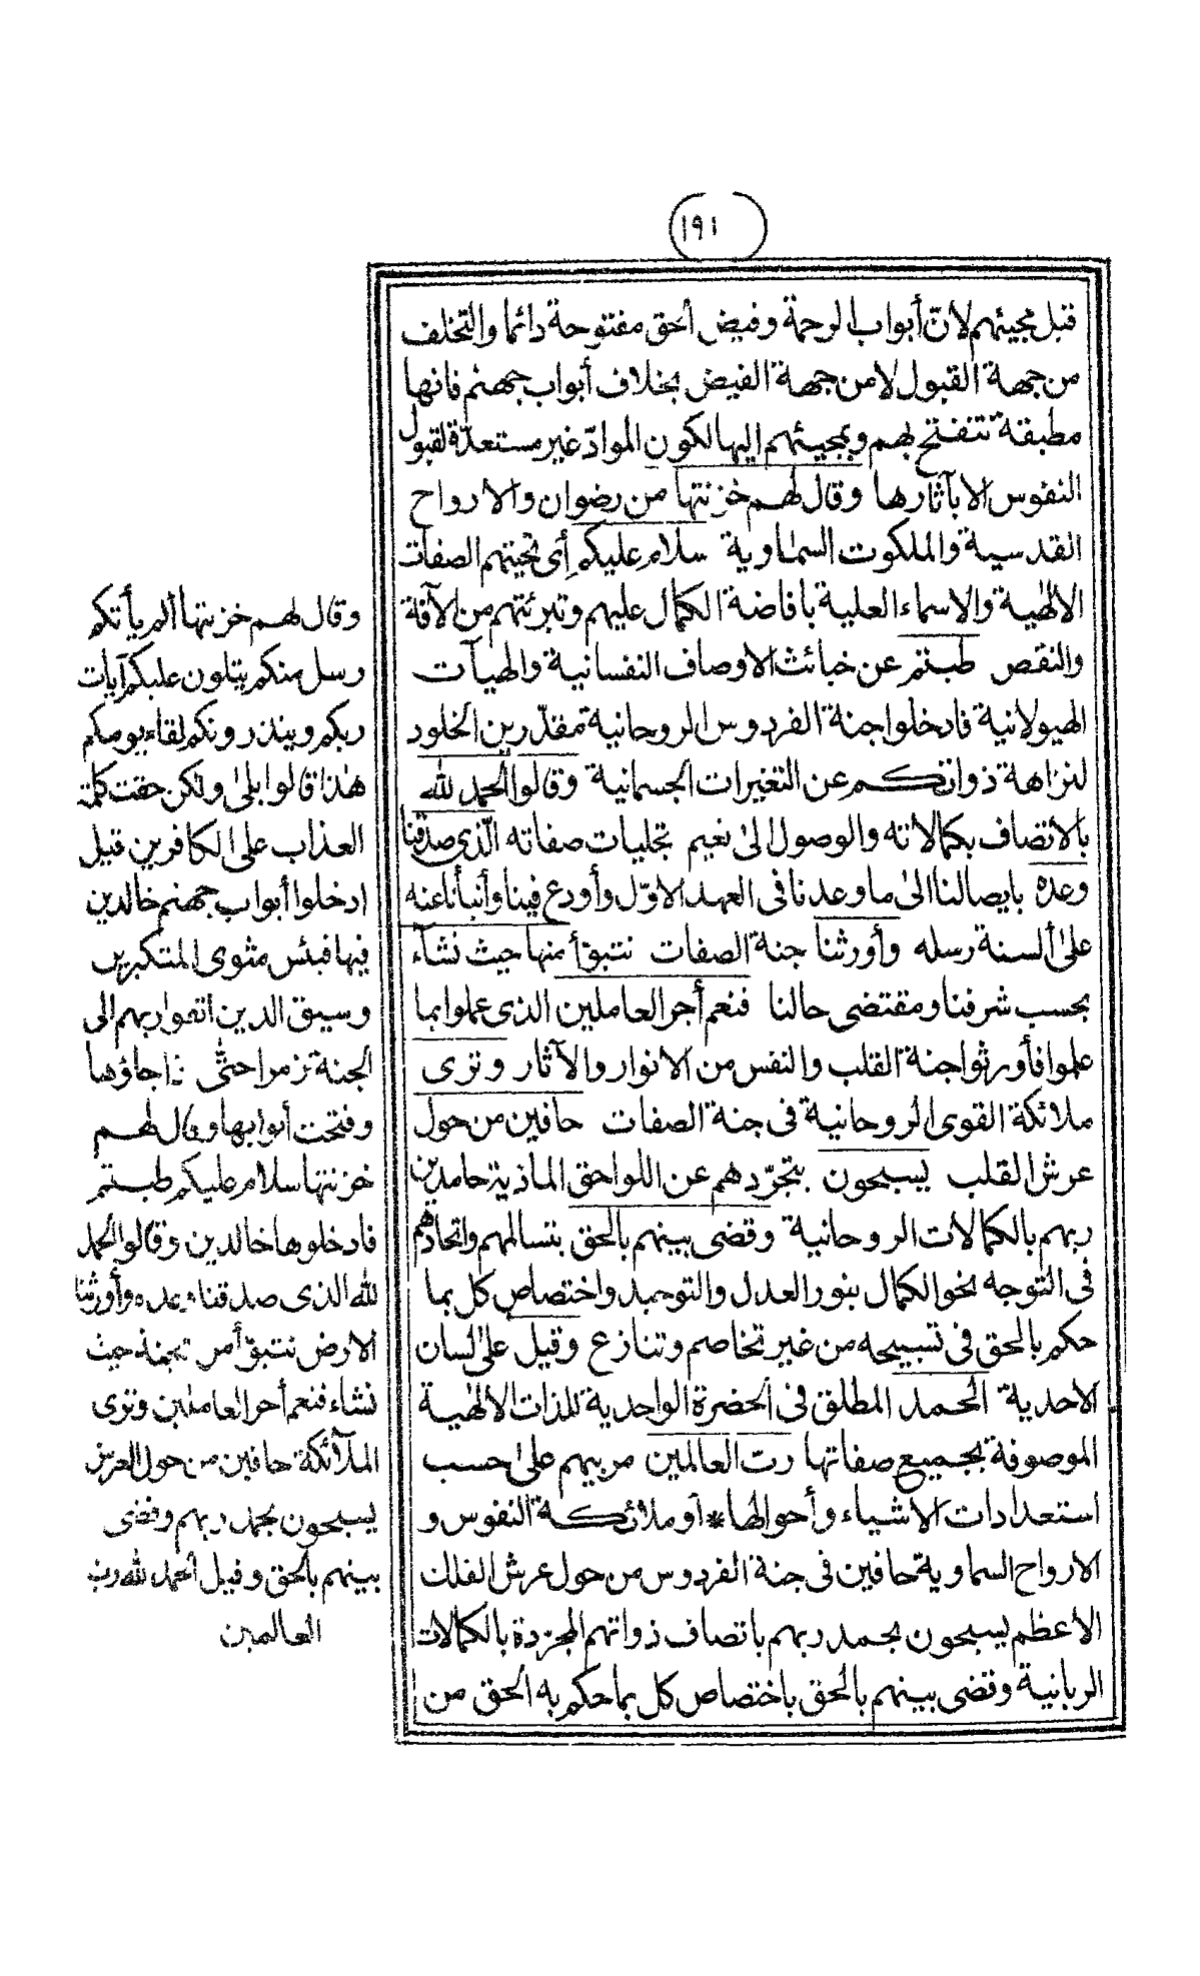 (١٩١)
قبل مجيئهم لانّ أبواب الرحمة وفيض الحق مفتوحة دائما والتخلف
من جهة القبول لا من جهة الفيض بخلاف أبواب جهنم فانها
مطبقة تنفتح بهم وبمجيئهم اليها لكون الموادّ غير مستعدّة لقبول
النفوس الا بآثارها وقال لهم خزنتها من رضوان والارواح
القدسية والملكوت السماوية سلام عليكم أى تحيتهم الصفات
الالهية والاسماء العلية بافاضة الكمال عليهم وتبرئتهم من الآفة
والنقص طبتم عن خبائث الاوصاف النفسانية والهيآت
الهيولانية فادخلوا جنة الفردوس الروحانية مقدّرين الخلود
لنزاهة ذواتكم عن التغيرات الجسمانية وقالوا الحمد لله
بالاتصاف بكمالاته والوصول الى نعيم تجليات صفاته الّذى صدقنا
وعده بايصالنا الى ما وعدنا فى العهد الاوّل وأودع فينا وأنبأنا عنه
على ألسنة رسله وأورثنا جنة الصفات نتبوّأ منها حيث نشآء
بحسب شرفنا ومقتضى حالنا فنعم أجر العاملين الذى عملوا بما
علموا فأورثوا جنة القلب والنفس من الانوار والآثار وترى
ملائكة القوى الروحانية فى جنة الصفات حافين من حول
عرش القلب يسبحون بتجرّدهم عن اللواحق المادّية حامدين
ربهم بالكمالات الروحانية وقضى بينهم بالحق بتسالمهم واتحادهم
فى التوجه نحو الكمال بنور العدل والتوحيد واختصاص كل بما
حكم بالحق فى تسبيحه من غير تخاصم وتنازع وقيل على لسان
الاحدية الحمد المطلق فى الحضرة الواحدية للذات الالهية
الموصوفة بجميع صفاتها ربّ العالمين مربيهم على حسب
استعدادات الاشياء وأحوالها * أو ملائكة النفوس و
الارواح السماوية حافين فى جنة الفردوس من حول عرش الفلك
الأعظم يسبحون بحمد ربهم باتصاف ذواتهم المجردة بالكمالات
الربانية وقضى بينهم بالحق باختصاص كل بما حكم به الحق من
وقال لهم خزنتها ألم يأتكم
رسل منكم يتلون عليكم آيات
ربكم وينذرونكم لقاء يومكم
هذا قالوا بلى ولكن حقت كلمة
العذاب على الكافرين قيل
ادخلوا أبواب جهنم خالدين
فيها فبئس مثوى المتكبرين
وسيق الذين اتقوا ربهم الى
الجنة زمرا حتى اذا جاؤها
وفتحت أبوابها وقال لهم
خزنتها سلام عليكم طبتم
فادخلوها خالدين وقالوا الحمد
لله الذى صدقنا وعده وأورثنا
الارض نتبوّأ من الجنة حيث
نشاء فنعم أجر العاملين وترى
الملآئكة حافين من حول العرش
يسبحون بحمد ربهم وقضى
بينهم بالحق وقيل الحمد لله رب
العالمين